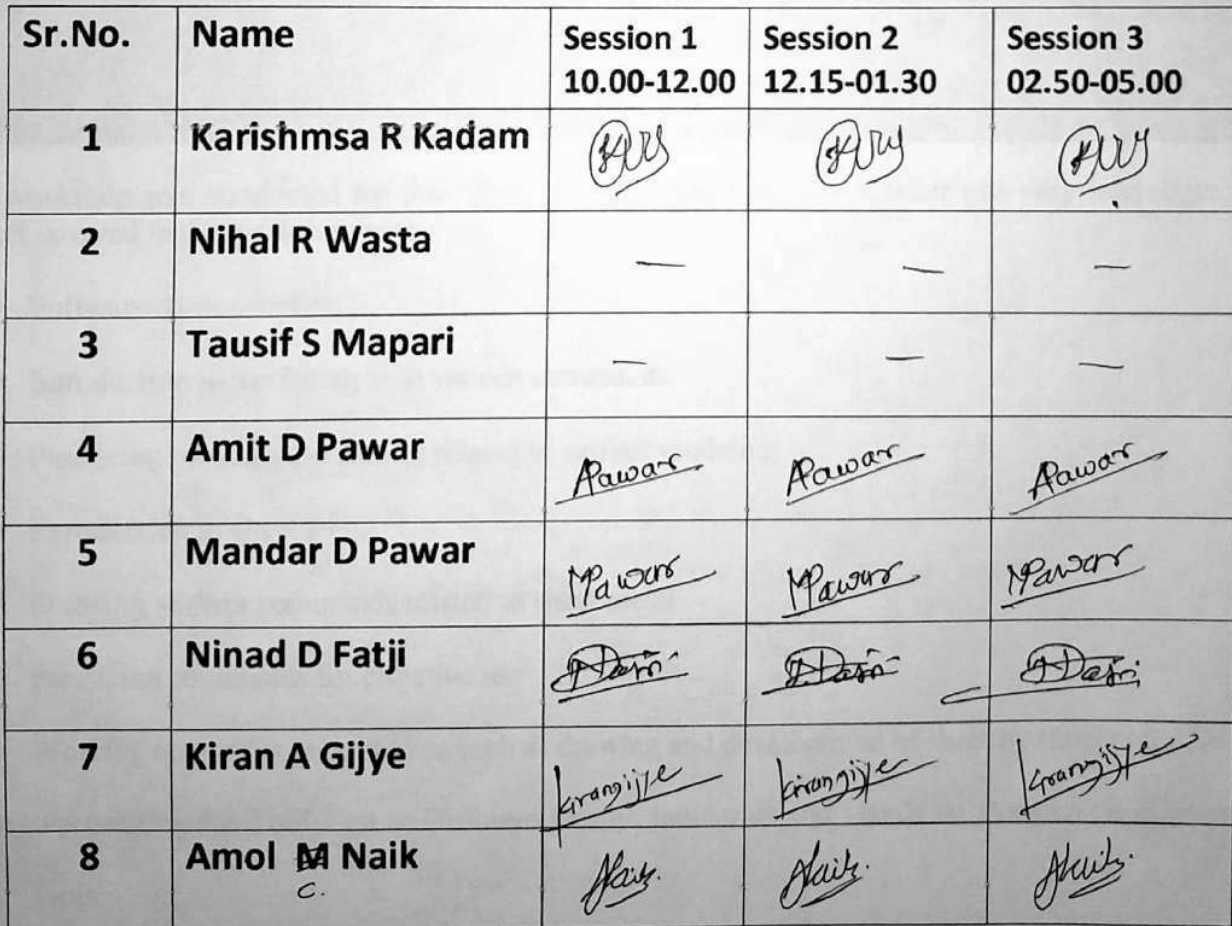 Sr.No. Name Session 1 Session 2 Session 3
10.00-12.00 12.15-01.30 02.50-05.00
1 Karishmsa R Kadam
2 Nihal R Wasta — — —
3 Tausif S Mapari — — —
4 Amit D Pawar APawar APawar APawar
5 Mandar D Pawar MPawar MPawar MPawar
6 Ninad D Fatji
7 Kiran A Gijye kirangijye kirangijye kirangijye
8 Amol M Naik
C.